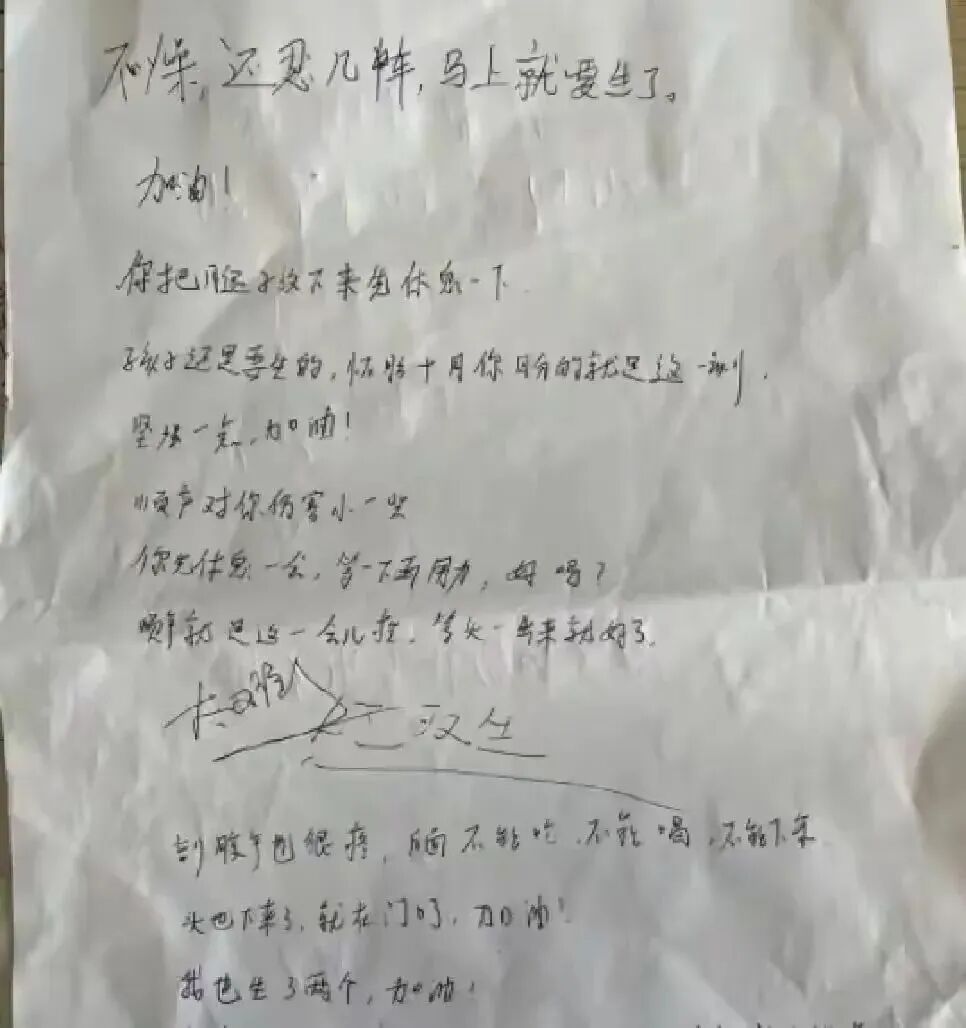 不燥,还忍几阵,马上就要生了。
加油!
你把腿子放下来先休息一下.
孩子还是要生的,怀胎十月你盼的就是这一刻.
坚强一点,加油!
顺产对你伤害小一些
你先休息一会,等一下再用力,好吗?
顺产就是这一会儿疼.等头一出来就好了.
剖腹产也很疼,后面不能吃.不能喝,不能下床
头也下来了,就在门口了,加油!
我也生了两个,加油!